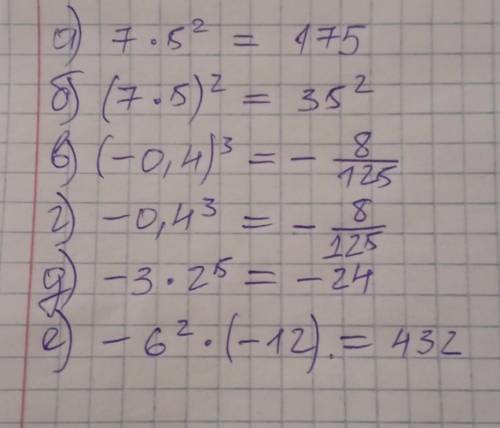 а) 7 · 5² = 175
б) (7 · 5)² = 35²
в) (-0,4)³ = - 8/125
г) -0,4³ = - 8/125
д) -3 · 2⁵ = -24
е) -6² · (-12). = 432